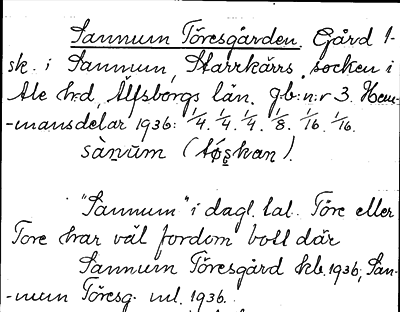 Sannum Töresgården. Gård 1-
sk. i Sannum, Starrkärrs socken i
Ale hrd, Älfsborgs län. gb:n:r 3. Hem-
-mansdelar 1936: 1/4. 1/4. 1/4. 1/8. 1/16. 1/16.
sànum (tøskan).
"Sannum" i dagl. tal. Töre eller
Tore har väl fordom bott där
Sannum Töresgård kb. 1936; San-
-num Töresg. ml. 1936.